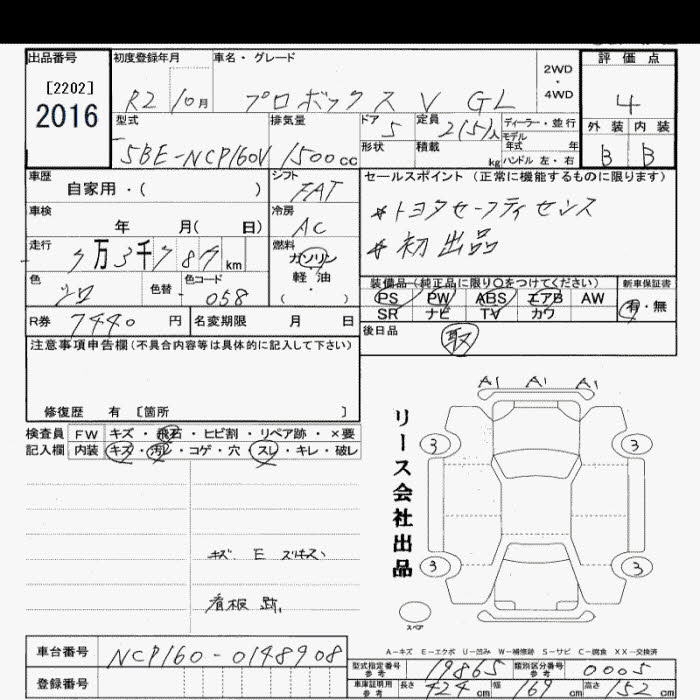 出品番号 初度登録年月 車名・グレード 評価点
[2202]
2016
R2 10月 プロボックス V GL
2WD
・
4WD
4
型式 排気量 ドア 定員 ディーラー・並行 外装 内装
5BE-NCP160V 1500cc 5 2(5)人
モデル
年式 年
形状 積載 kg ハンドル 左・右
B B
車歴 シフト セールスポイント(正常に機能するものに限ります)
自家用・( ) FAT
*トヨタセーフティセンス
車検 冷房
年 月( 日) AC
*初出品
走行 燃料
万3千 km ガソリン
軽・油
( ・ )
色 色替 色コード
シロ 058
装備品(純正品に限り○をつけてください) 新車保証書
PS PW ABS エアB AW 有・無
SR ナビ TV カワ
R券 7440円 名変期限 月 日
後日品 取
注意事項申告欄(不具合内容等は具体的に記入して下さい)
修復歴 有 [箇所 ]
A1 A1 A1
検査員 FW キズ・飛石・ヒビ割・リペア跡・×要
記入欄 内装 キズ・汚レ・コゲ・穴・スレ・キレ・破レ
リース会社出品
3 3
キズ. E
看板跡.
3 3
スペア
A-キズ E-エクボ U-凹み W-補修跡 S-サビ C-腐食 XX-交換済
車台番号 NCP160-0148908
型式指定番号 参考 19865 類別区分番号 参考 0005
登録番号
車庫証明用 参考 長さ 424cm 幅 169cm 高さ 152cm